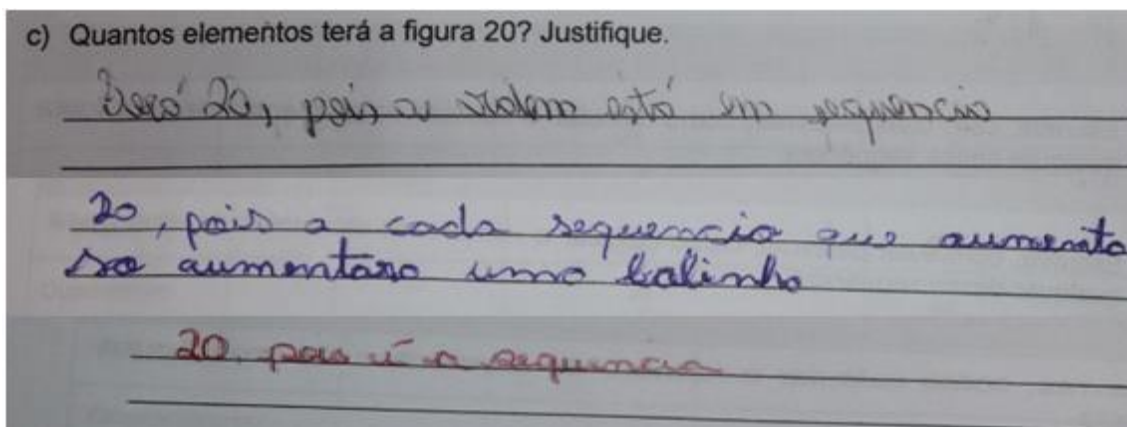 c) Quantos elementos terá a figura 20? Justifique.
Terá 20, pois a ordem está em sequencia
20, pois a cada sequencia que aumenta
so aumentara uma bolinha
20, pois é a sequencia